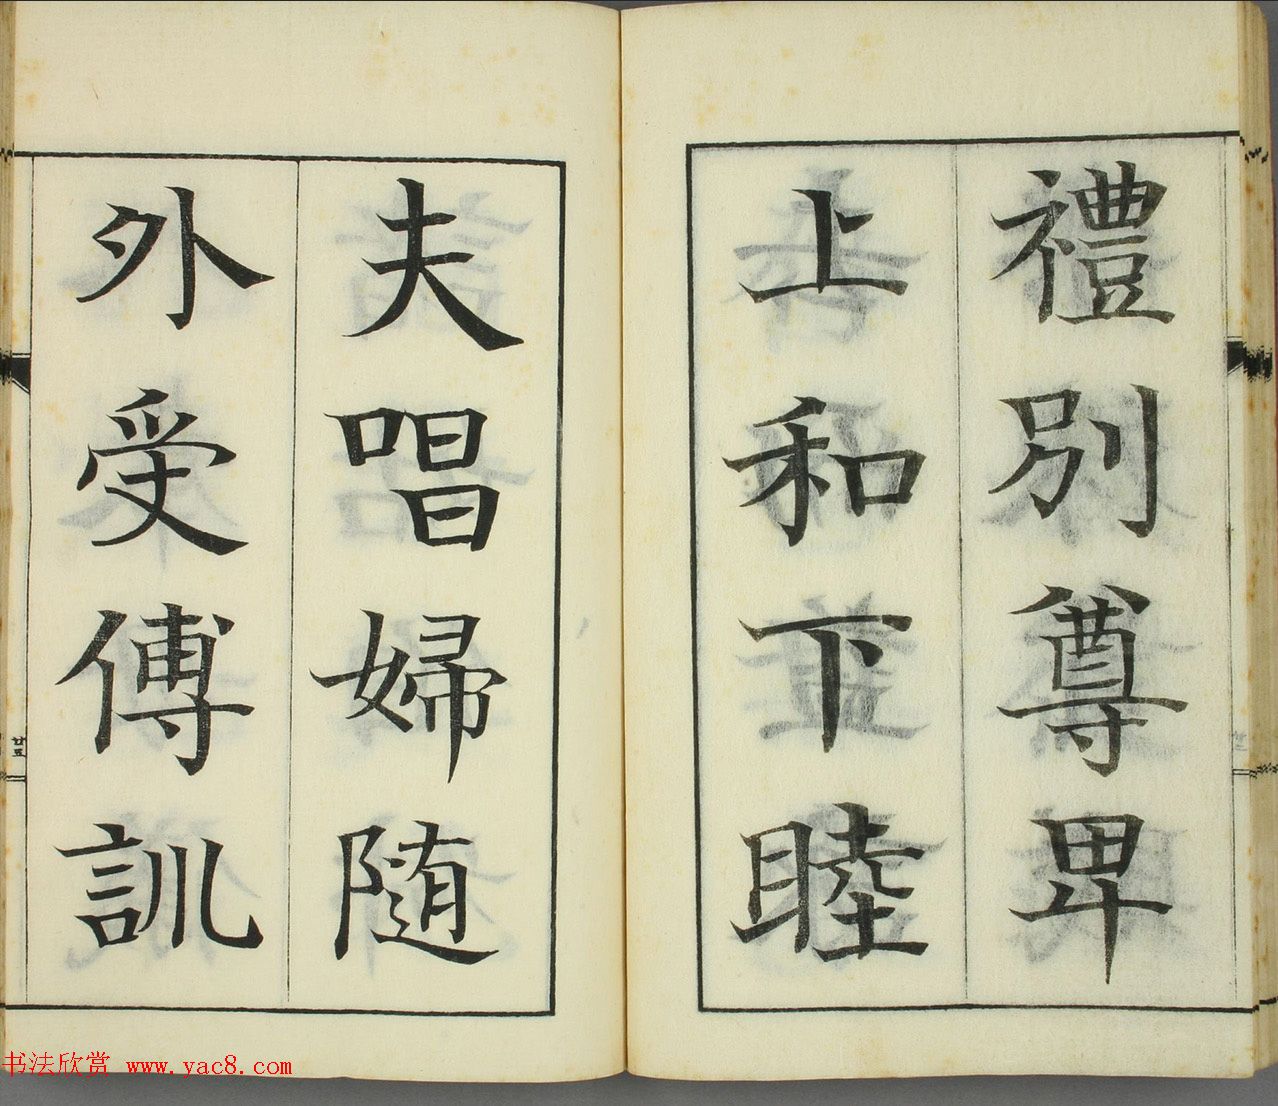 禮別尊卑
上和下睦
夫唱婦随
外受傅訓
廿五
书法欣赏 www.yac8.com